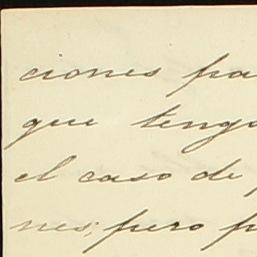 ciones pa
que teng
el caso de
nes; pero p